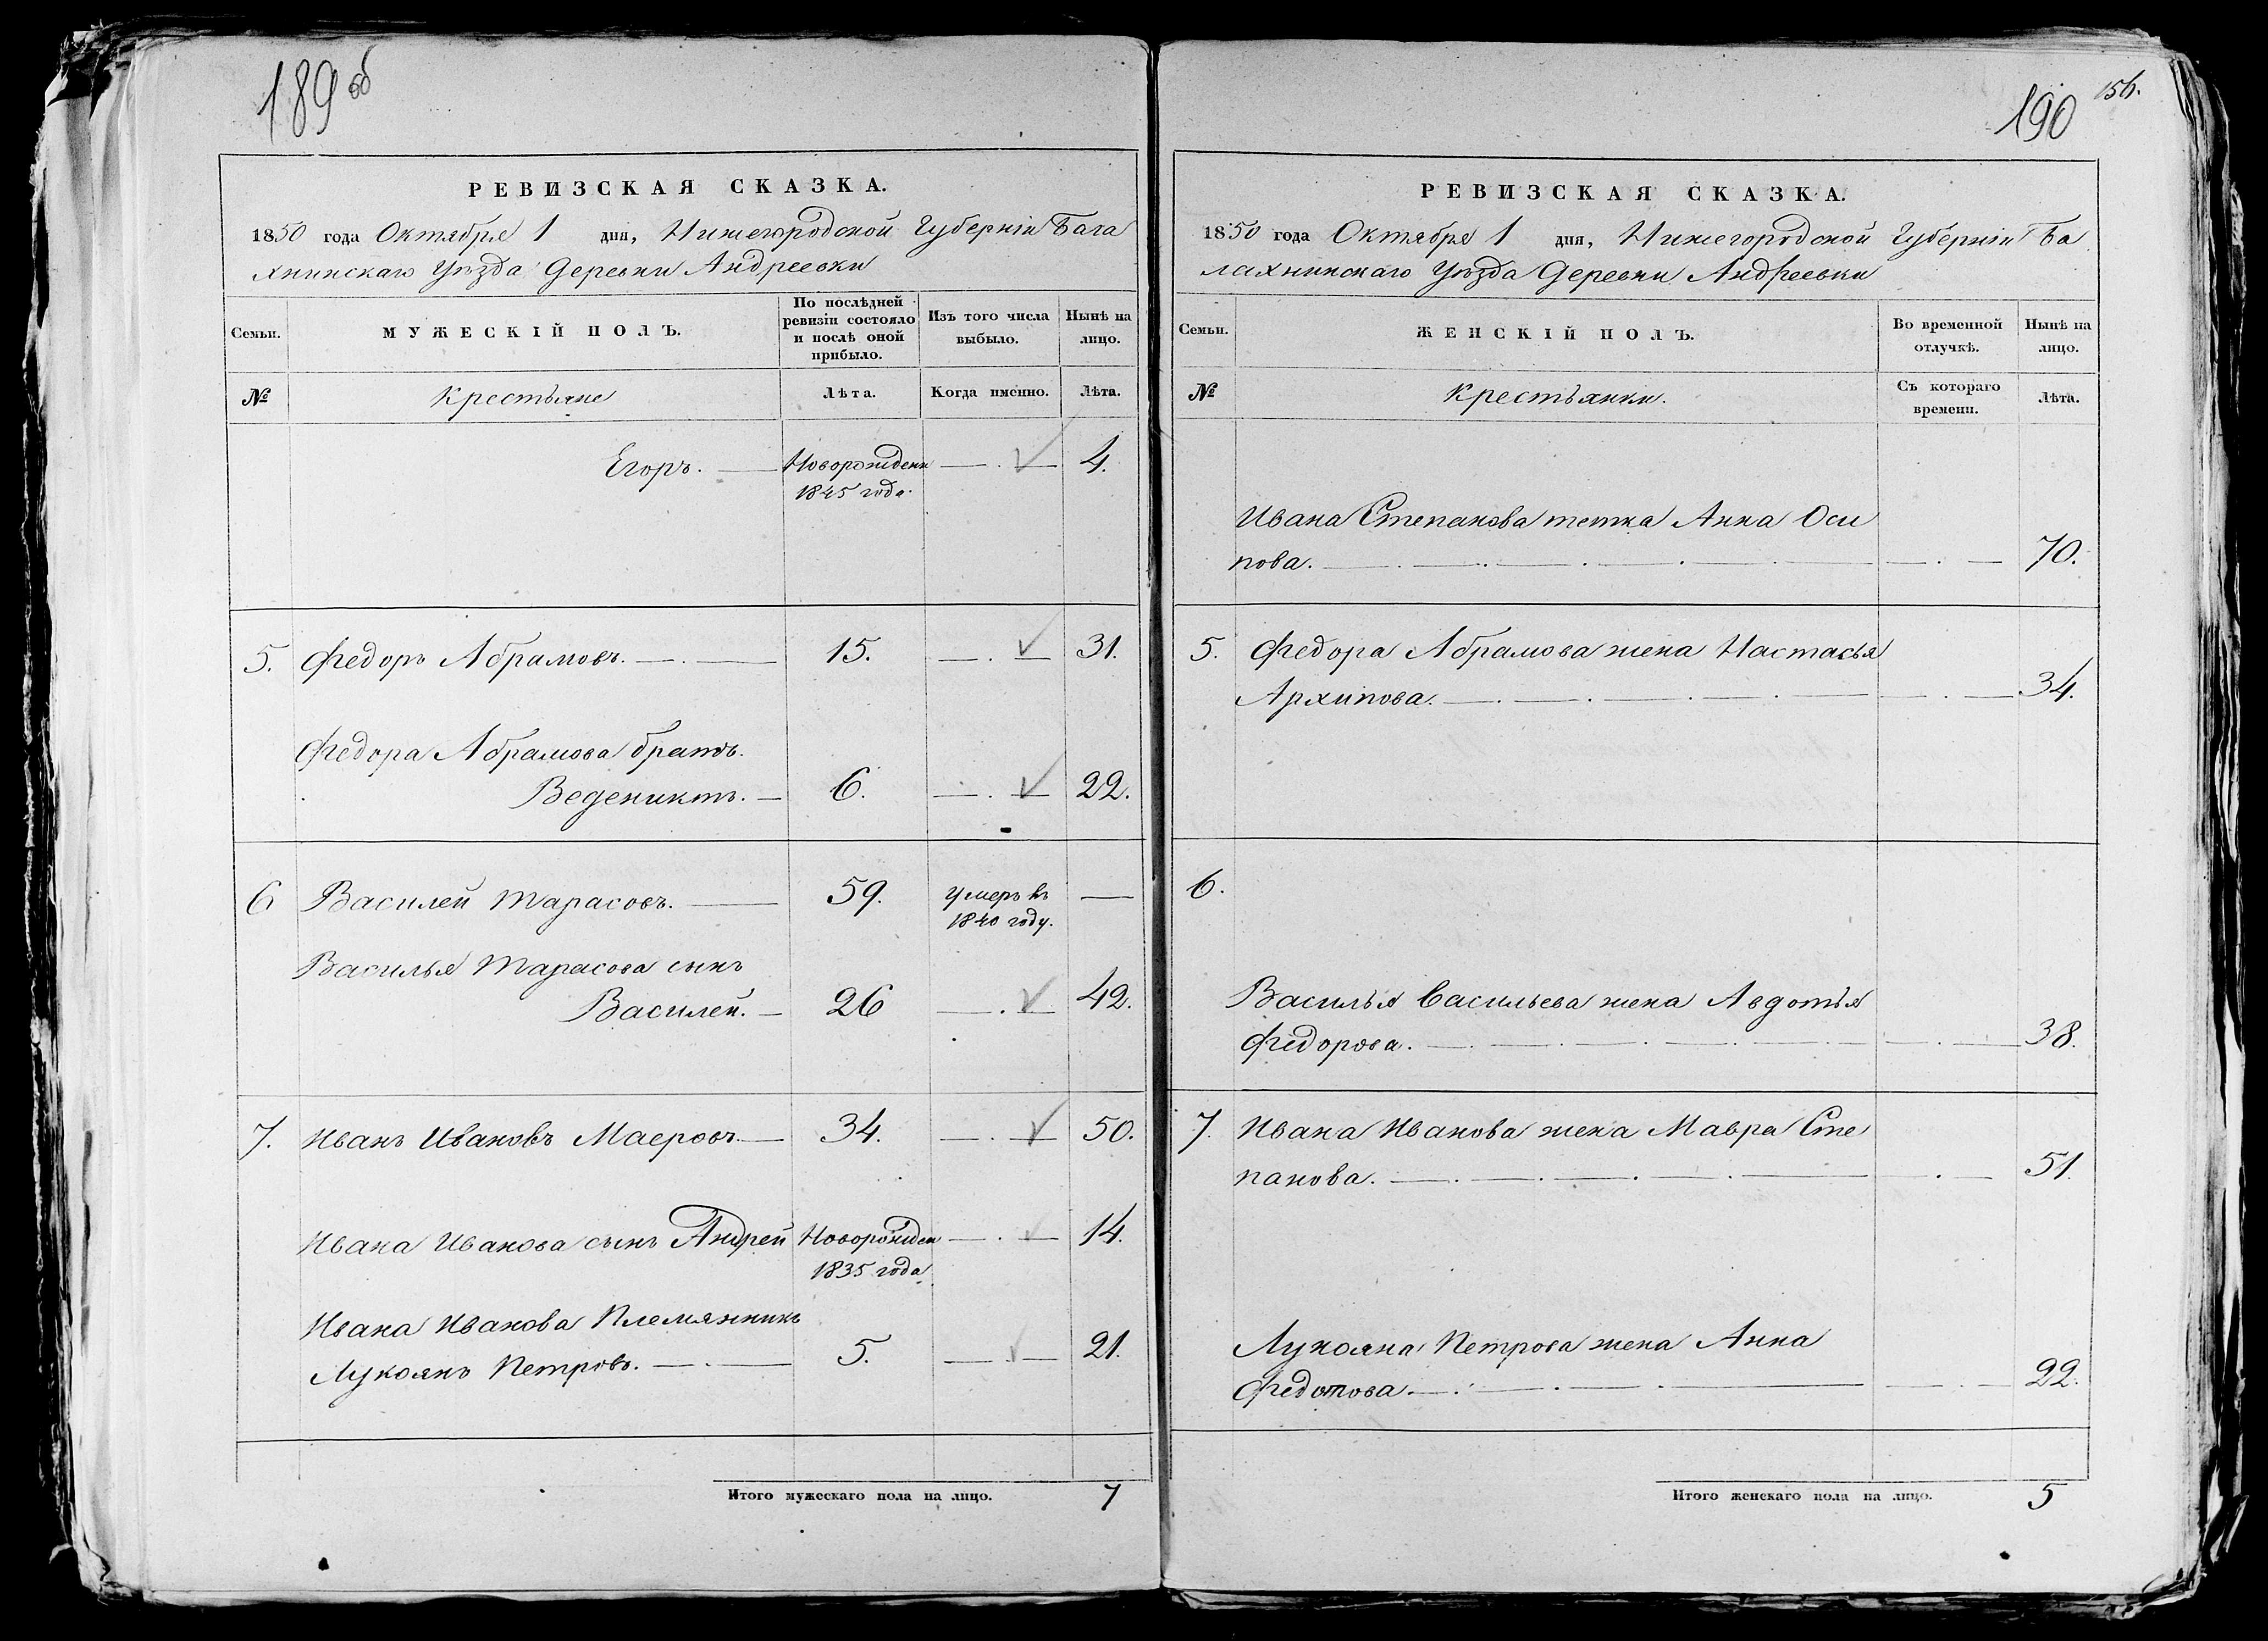 189 об
РЕВИЗСКАЯ СКАЗКА.
1850 года Октября 1 дня, Нижегородской Губерніи Бала
хнинскаго Уѣзда Деревни Андреевки
Семьи.
МУЖЕСКІЙ ПОЛЪ.
По послѣдней
ревизіи состояло
и послѣ оной
прибыло.
Изъ того числа
выбыло.
Нынѣ на
лицо.
№ Крестьяне Лѣта. Когда именно. Лѣта.
Егоръ. Новорожден 4.
1845 года.
5. Федоръ Абрамовъ. 15. 31.
Федора Абрамова братъ.
Ведениктъ. 6. 22.
6 Василей Тарасовъ. 59. умеръ въ
1840 году.
Василья Тарасова сынъ
Василей. 26 42.
7. Иванъ Ивановъ Маеровъ. 34. 50.
Ивана Иванова сынъ Андрей Новорожден 14.
1835 года
Ивана Иванова Племянникъ
Лукоянъ Петровъ. 5. 21.
Итого мужескаго пола на лицо. 7
190 156.
РЕВИЗСКАЯ СКАЗКА.
1850 года Октября 1 дня, Нижегородской Губерніи Ба
лахнинскаго Уѣзда Деревни Андреевки
Семьи.
ЖЕНСКІЙ ПОЛЪ.
Во временной
отлучкѣ.
Нынѣ на
лицо.
№ Крестьянки. Съ котораго
времени.
Лѣта.
Ивана Степанова тетка Анна Оси
пова. 70.
5. Федора Абрамова жена Настасья
Архипова. 34.
6.
Василья Васильева жена Авдотья
Федорова. 38.
7. Ивана Иванова жена Мавра Сте
панова. 51.
Лукояна Петрова жена Анна
Федотова. 22.
Итого женскаго пола на лицо. 5